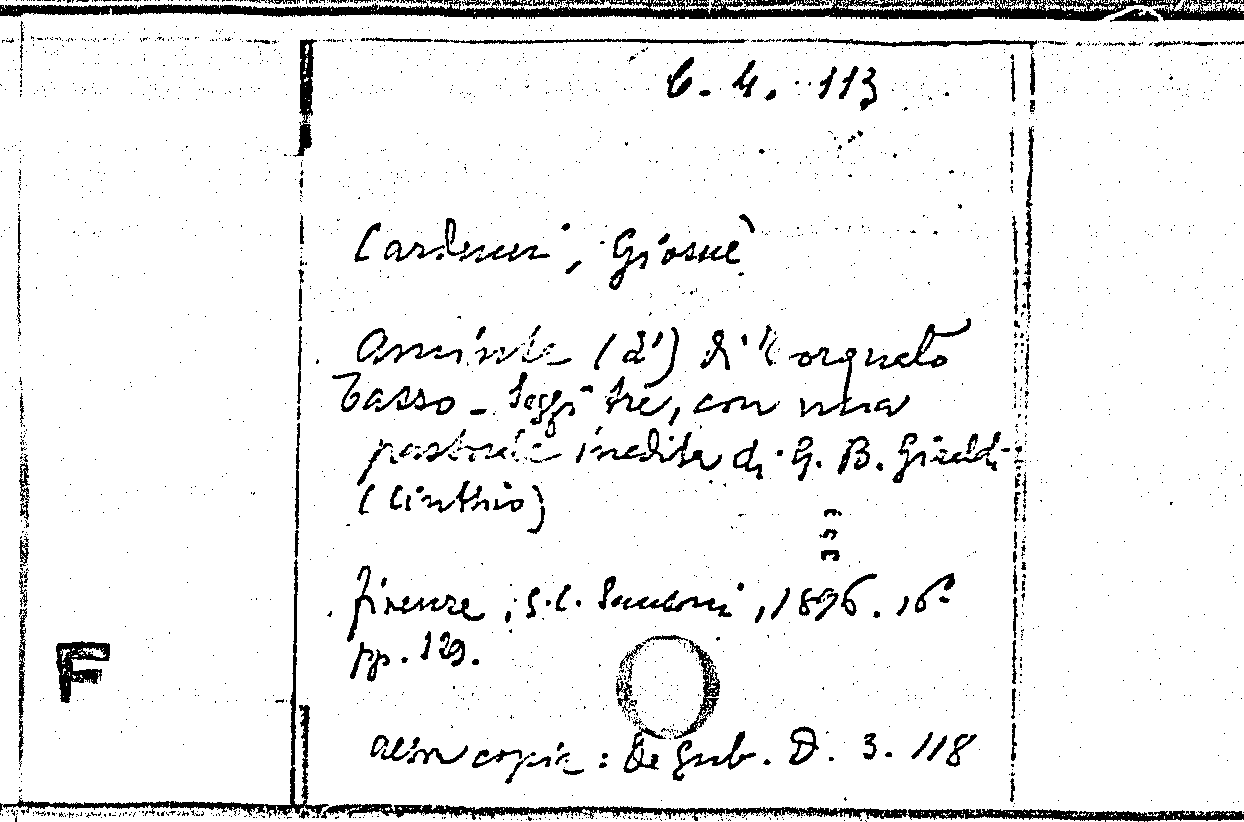 6. 4. 113
Carducci, Giosuè
Aminta (l') di Torquato
Tasso - Saggi tre, con una
pastorale inedita di G. B. Giraldi
(Cinthio)
Firenze, G. C. Sansoni, 1896. 16°
pp. 129.
F
altra copia: De Gub. D. 3. 118